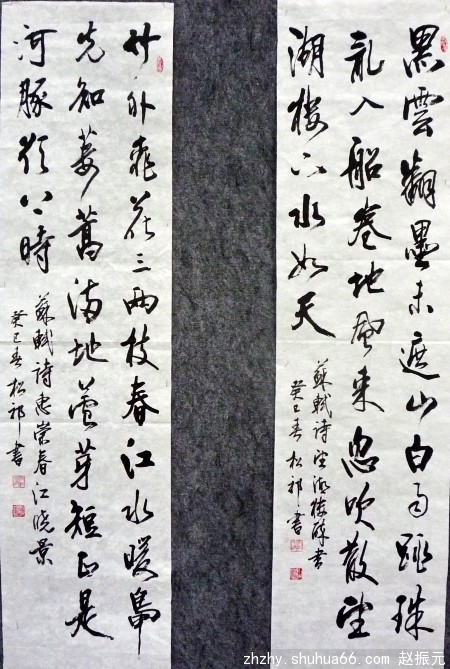 黑雲翻墨未遮山白雨跳珠
亂入船卷地風来忽吹散望
湖樓下水如天
蘇軾詩望湖樓醉書
癸巳春松祁書
竹外桃花三兩枝春江水暖鴨
先知蔞蒿滿地蘆芽短正是
河豚欲上時
蘇軾詩惠崇春江晓景
癸巳春松祁書
zhzhy.shuhua66.com 赵振元